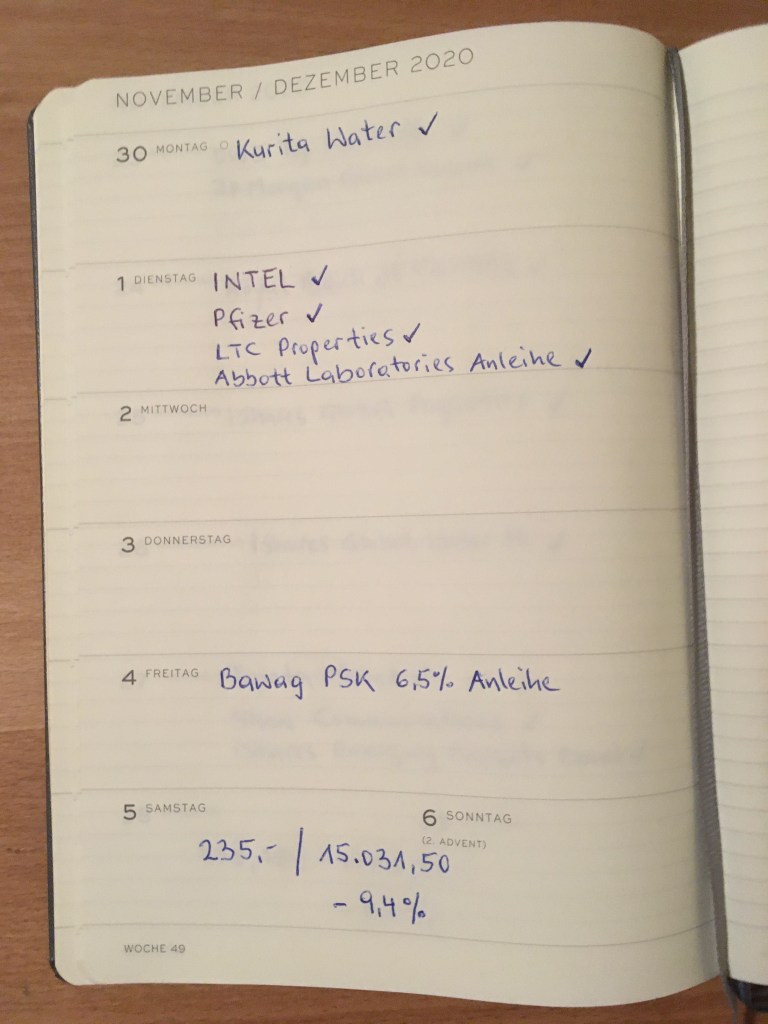 NOVEMBER / DEZEMBER 2020
30 MONTAG Kurita Water ✓
1 DIENSTAG INTEL ✓
Pfizer ✓
LTC Properties ✓
Abbott Laboratories Anleihe ✓
2 MITTWOCH
3 DONNERSTAG
4 FREITAG Bawag PSK 6,5% Anleihe
5 SAMSTAG
6 SONNTAG
(2. ADVENT)
235,- / 15.031,50
- 9,4%
WOCHE 49